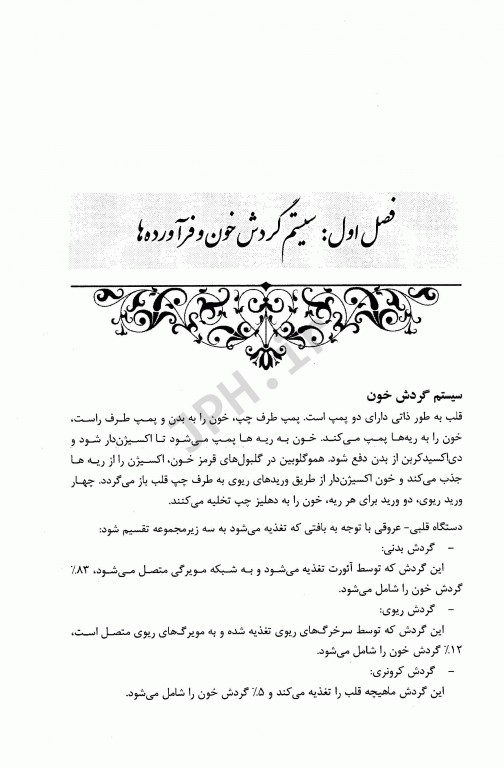 فصل اول: سیستم گردش خون و فرآورده‌ها
سیستم گردش خون
قلب به طور ذاتی دارای دو پمپ است. پمپ طرف چپ، خون را به بدن و پمپ طرف راست،
خون را به ریه‌ها پمپ می‌کند. خون به ریه ها پمپ می‌شود تا اکسیژن‌دار شود و
دی‌اکسیدکربن از بدن دفع شود. هموگلوبین در گلبول‌های قرمز خون، اکسیژن را از ریه ها
جذب می‌کند و خون اکسیژن‌دار از طریق وریدهای ریوی به طرف چپ قلب باز می‌گردد. چهار
ورید ریوی، دو ورید برای هر ریه، خون را به دهلیز چپ تخلیه می‌کنند.
دستگاه قلبی- عروقی با توجه به بافتی که تغذیه می‌شود به سه زیرمجموعه تقسیم شود:
- گردش بدنی:
این گردش که توسط آئورت تغذیه می‌شود و به شبکه مویرگی متصل می‌شود، ۸۳٪
گردش خون را شامل می‌شود.
- گردش ریوی:
این گردش که توسط سرخرگ‌های ریوی تغذیه شده و به مویرگ‌های ریوی متصل است،
۱۲٪ گردش خون را شامل می‌شود.
- گردش کرونری:
این گردش ماهیچه قلب را تغذیه می‌کند و ۵٪ گردش خون را شامل می‌شود.